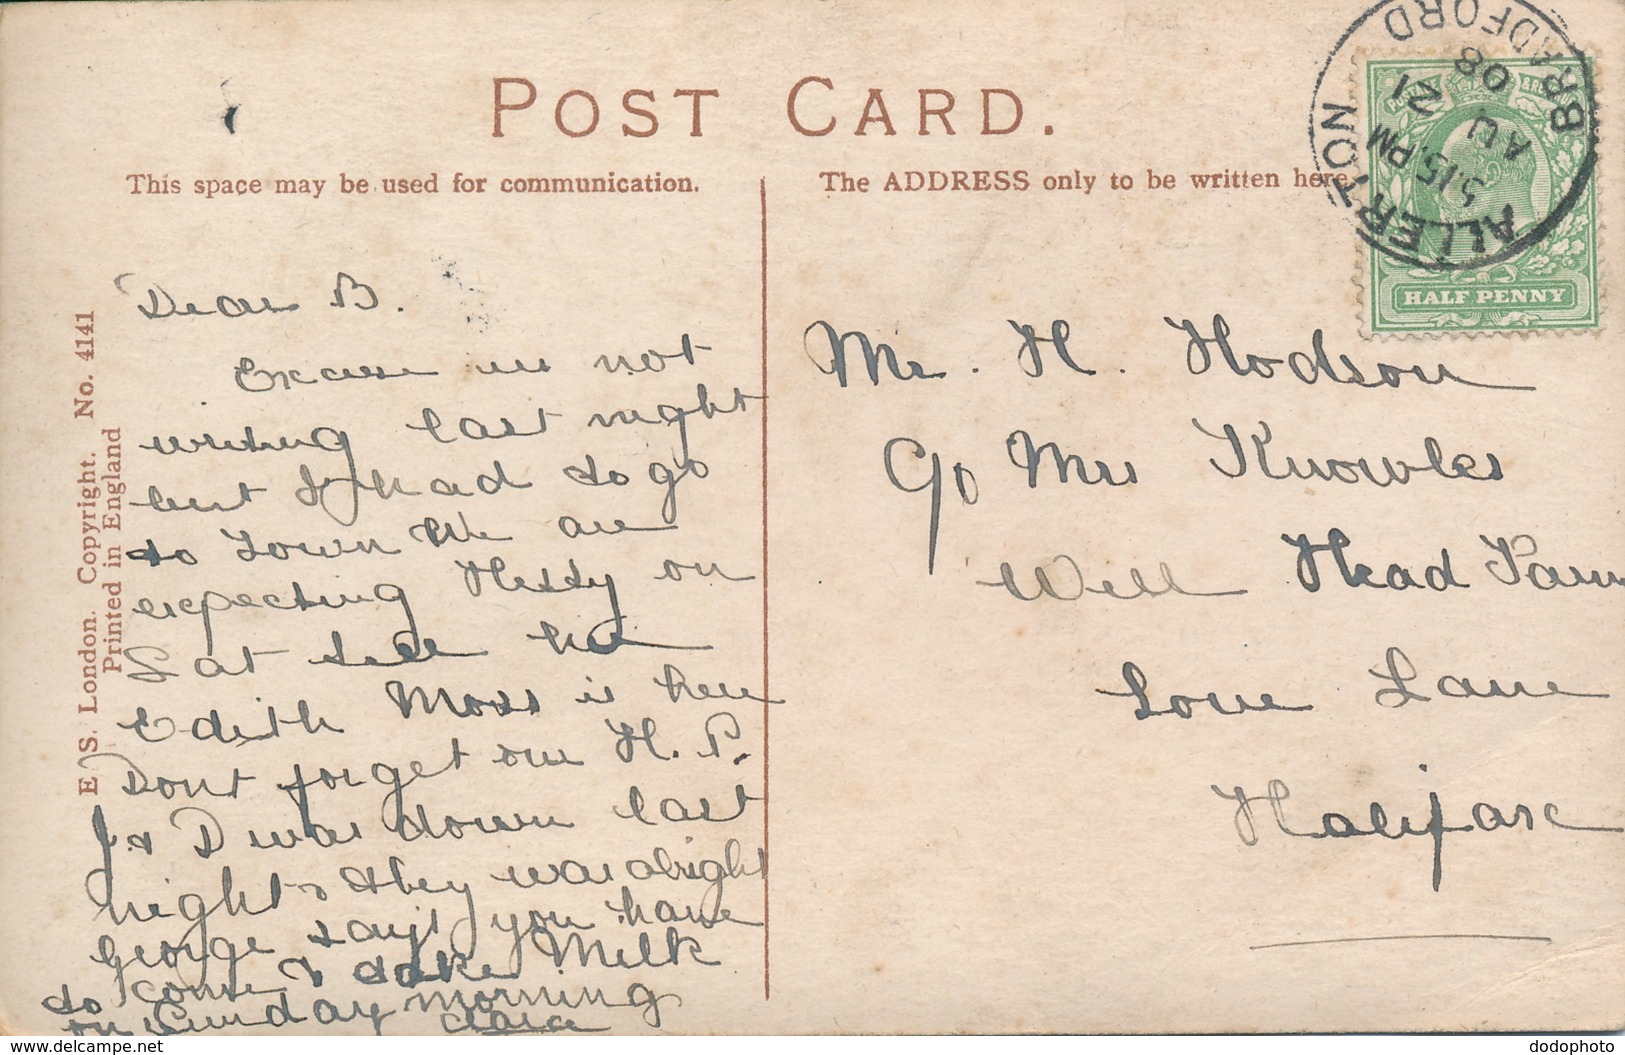 POST CARD.
This space may be used for communication.
The ADDRESS only to be written here.
ALLERTON
BRADFORD
5.15. PM
AU 21
08
HALF PENNY
E. S. London. Copyright. No. 4141
Printed in England
Dear B.
Excuse us not
writing last night
but I had to go
to Town We are
expecting Hetty on
Sat tell her
Edith Moss is here
Dont forget our H. P.
J. & D was down last
night & they was alright
George says you have
to come & take Milk
on Sunday morning
Clara
Mr. H. Hodson
C/o Mrs Knowles
Well Head Farm
Love Lane
Halifax
delcampe.net
dodophoto